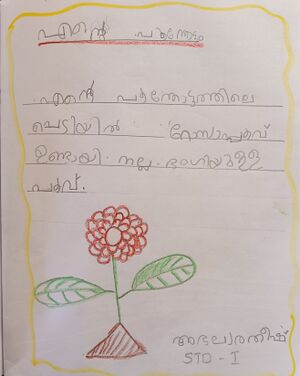 എന്റെ പൂന്തോട്ടം
എന്റെ പൂന്തോട്ടത്തിലെ
ചെടിയിൽ റോസാപ്പൂവ്
ഉണ്ടായി. നല്ല ഭംഗിയുള്ള
പൂവ്.
STD - I